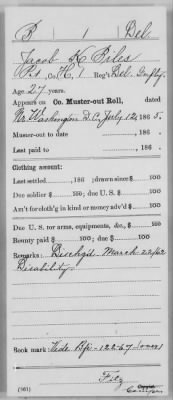 R | 1 | Del.
Jacob K Riles
Pvt., Co. K, 1 Reg't Del. Infty.
Age 27 years.
Appears on Co. Muster-out Roll, dated
Nr. Washington D.C. July 12, 1865.
Muster-out to date , 186 .
Last paid to , 186 .
Clothing account:
Last settled , 186 ; drawn since $ 100
Due soldier $ 100; due U. S. $ 100
Am't for cloth'g in kind or money adv'd $ 100
Due U. S. for arms, equipments, &c., $ 100
Bounty paid $ 100; due $ 100
Remarks: Disch'gd March 22/62
Disability.
Book mark:
(361)
Copyist.